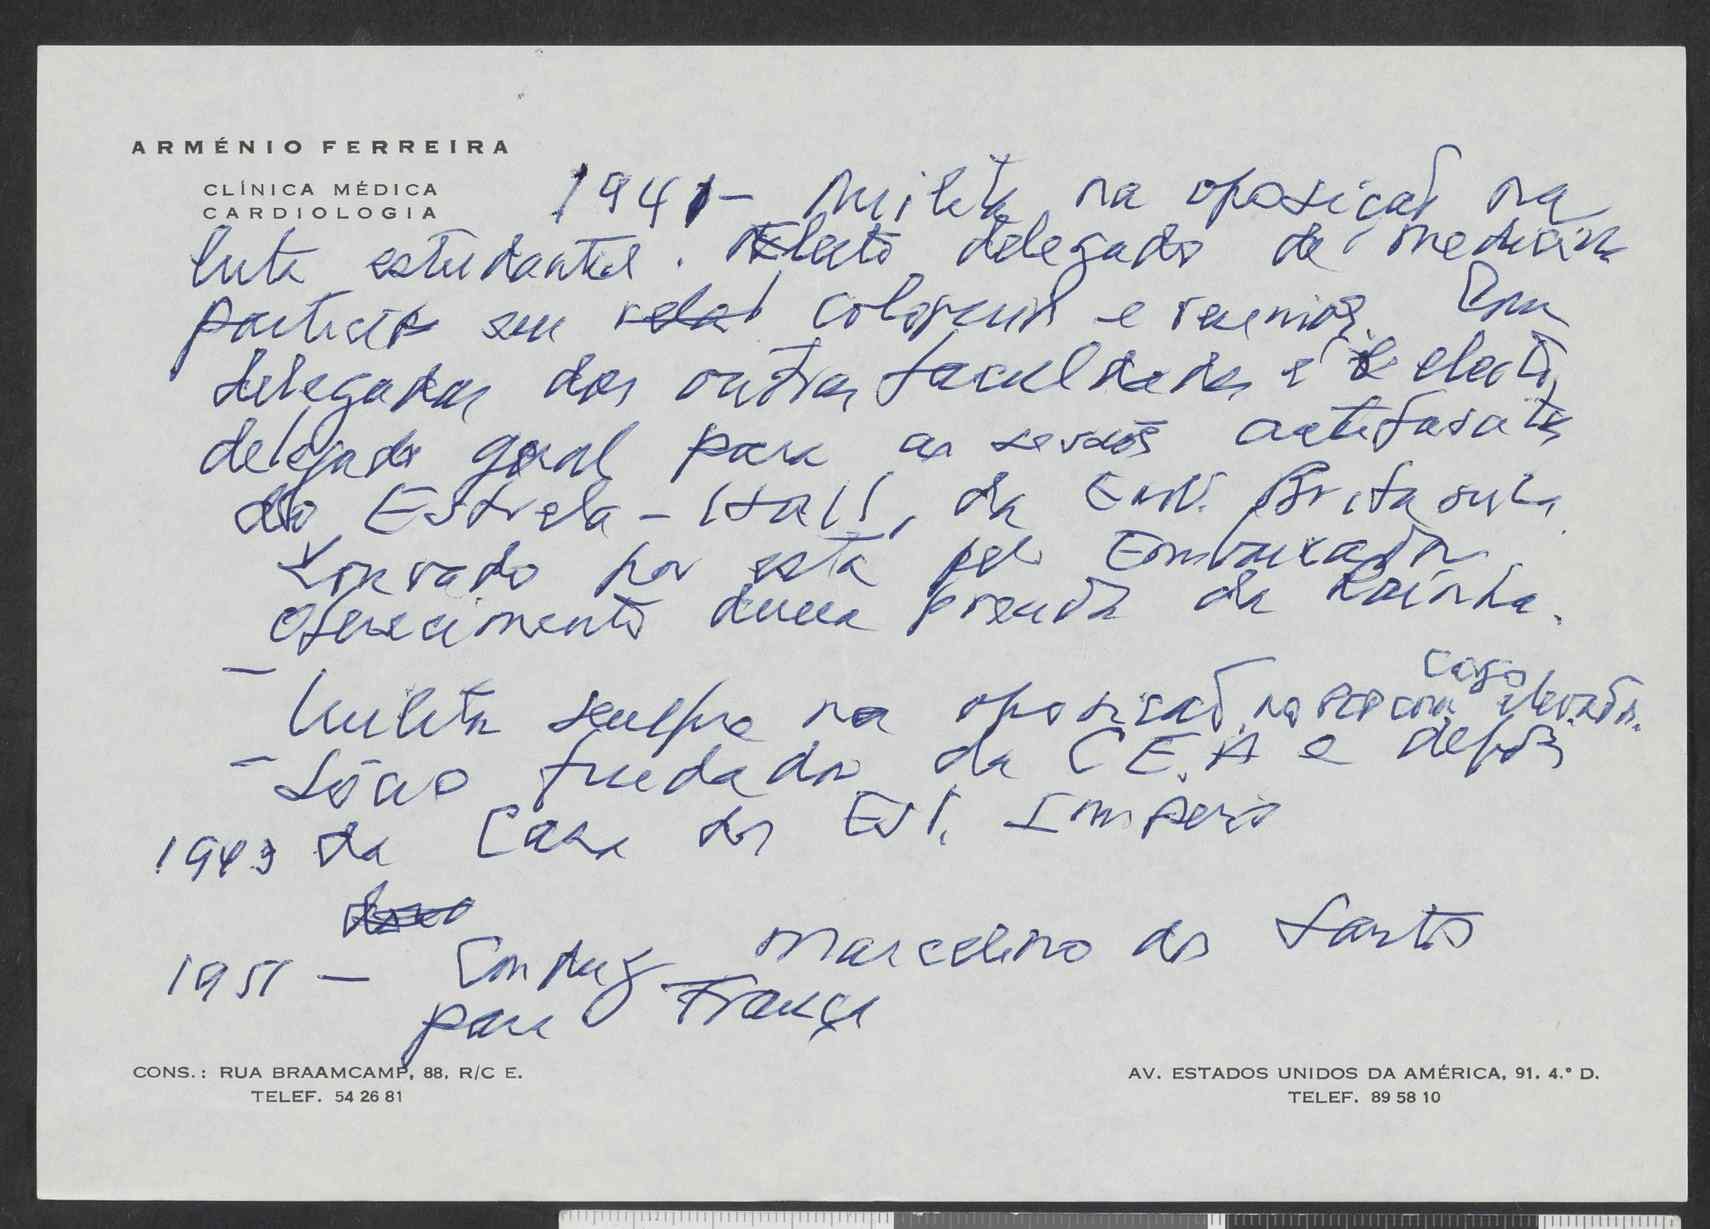 ARMÉNIO FERREIRA
CLÍNICA MÉDICA
CARDIOLOGIA
1941 - Milita na oposição na
luta estudantil. Electo delegado de medicina
participa em coloquios e reunioes com
delegados das outras faculdades e é electo
delegado geral para as sessões antifascistas
do Estrela - Hall, da Emb. Britanica.
Louvado por esta pelo Embaixador
oferecimento duma prenda da Rainha.
- Milita sempre na oposição, no PCP com cargo elevado.
- Sócio fundador da C.E.A e depois
1943 da Casa dos Est. Imperio
1951 - Conduz Marcelino dos Santos
para França
CONS.: RUA BRAAMCAMP, 88, R/C E.
TELEF. 54 26 81
AV. ESTADOS UNIDOS DA AMÉRICA, 91, 4.° D.
TELEF. 89 58 10